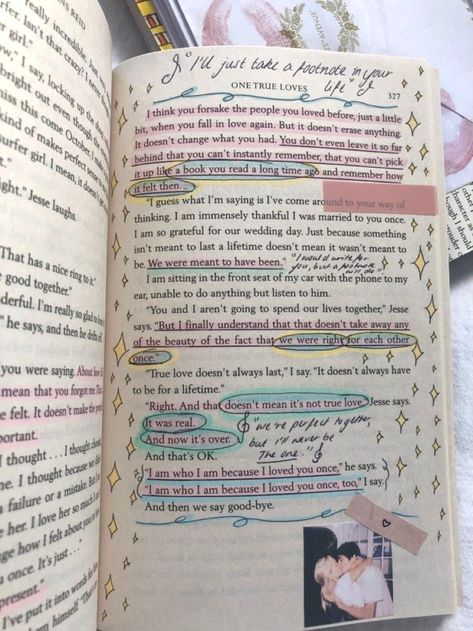 REID
really incredible. Jesse
r girl."
Isn't that crazy? I mean
now," I say, locking up the
bright out even though
miss this come October, I
kind of makes perfect sense
urfer girl. I mean, it does
ght." Jesse laughs.
That has a nice ring to it."
e good together."
derful. I'm really so glad to
he says, and then he drifts of
you were saying. About how
mean that you forgot me. Th
e felt. It doesn't make the
portant.
I thought . . . I thought
ne. I thought because we
a failure or a mistake. But I
e her. I love her so much
nge how I felt about you
u once. It's just . . ."
present."
I've put it into words
am himself. "That's
"I'll just take a footnote in your
life"
ONE TRUE LOVES
327
I think you forsake the people you loved before, just a little
bit, when you fall in love again. But it doesn't erase anything.
It doesn't change what you had. You don't even leave it so far
behind that you can't instantly remember, that you can't pick
it up like a book you read a long time ago and remember how
it felt then.
"I guess what I'm saying is I've come around to your way of
thinking. I am immensely thankful I was married to you once.
I am so grateful for our wedding day. Just because something
isn't meant to last a lifetime doesn't mean it wasn't meant to
be. We were meant to have been." "I would write for
you, but a footnote
will do"
I am sitting in the front seat of my car with the phone to my
ear, unable to do anything but listen to him.
"You and I aren't going to spend our lives together," Jesse
says. "But I finally understand that that doesn't take away any
of the beauty of the fact that we were right for each other
once."
"True love doesn't always last," I say. "It doesn't always
have to be for a lifetime."
"Right. And that doesn't mean it's not true love," Jesse says.
It was real. "we're perfect together,
And now it's over. but I'll never be
And that's OK. The one."
"I am who I am because I loved you once," he says.
"I am who I am because I loved you once, too," I say.
And then we say good-bye.